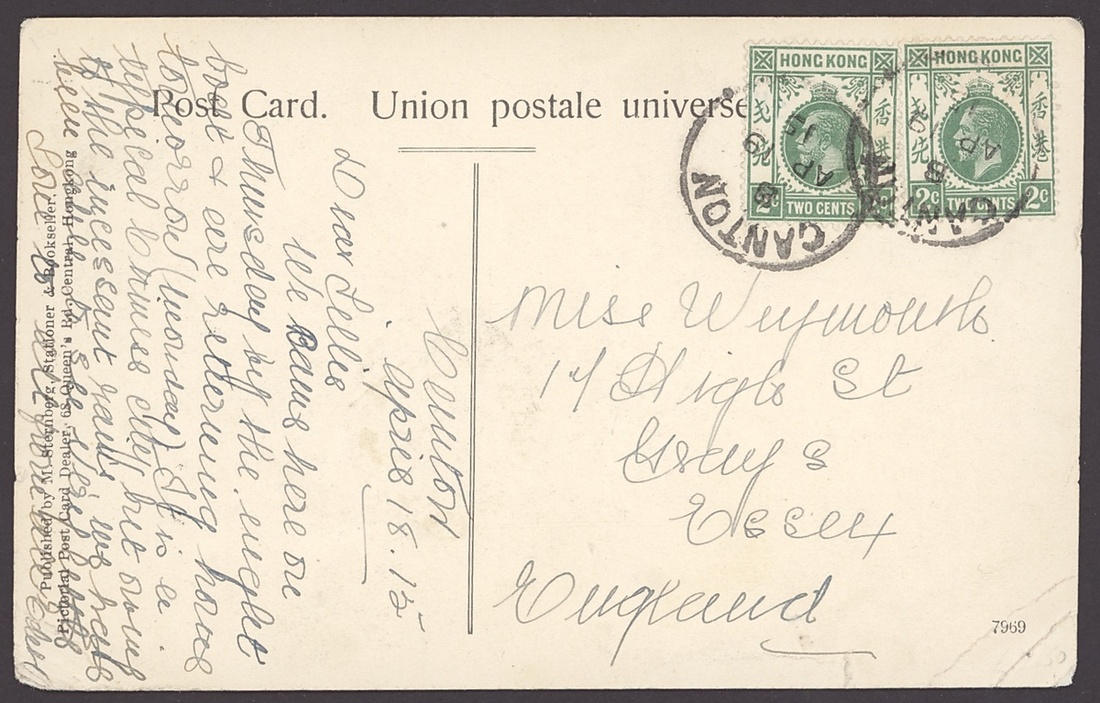 Post Card. Union postale universe
HONG KONG
香港
TWO CENTS
2c
HONG KONG
香港
TWO CENTS
2c
2c
CANTON
B
AP 19
15
CANTON
B
AP
Canton
April 18. 15
Dear Lillie
We came here on
Thursday by the night
boat & are returning home
tomorrow (monday) It is a
typical Chinese city but owing
to the incessant rains we have
been
Love to all
Published by M. Sternberg, Stationer & Bookseller.
Pictorial Post Card Dealer, 68, Queen's Rd. Central, Hongkong
Miss Weymouth
17 High St
Grays
Essex
England
7969